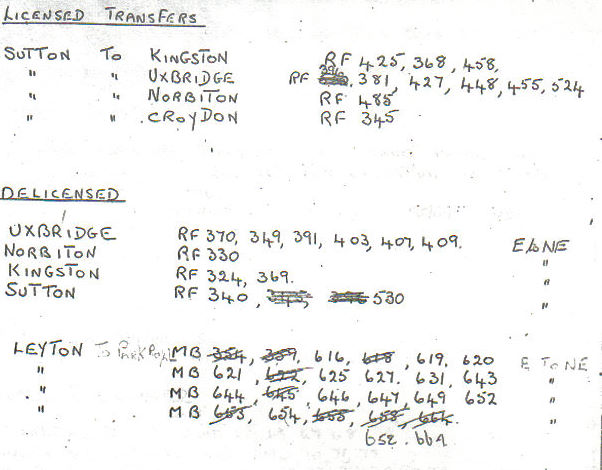 LICENSED TRANSFERS
SUTTON TO KINGSTON RF 425, 368, 458,
" " UXBRIDGE RF 381, 427, 448, 455, 524
" " NORBITON RF 485
" " CROYDON RF 345
DELICENSED
UXBRIDGE RF 370, 349, 391, 403, 407, 409. E to NE
NORBITON RF 330 "
KINGSTON RF 324, 369. "
SUTTON RF 340, 530 "
LEYTON To MB 354, 359, 616, 618, 619, 620 E TO NE
" MB 621, 622, 625 627. 631, 643 "
" MB 644, 645 646, 647, 649 652 "
" MB 653, 654, 655, 658, 664. "
652. 664